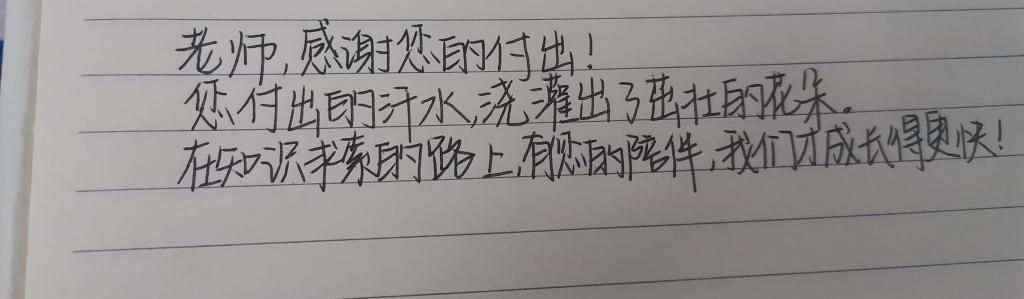 老师,感谢您的付出!
您付出的汗水,浇灌出了茁壮的花朵。
在知识求索的路上,有您的陪伴,我们才成长得更快!